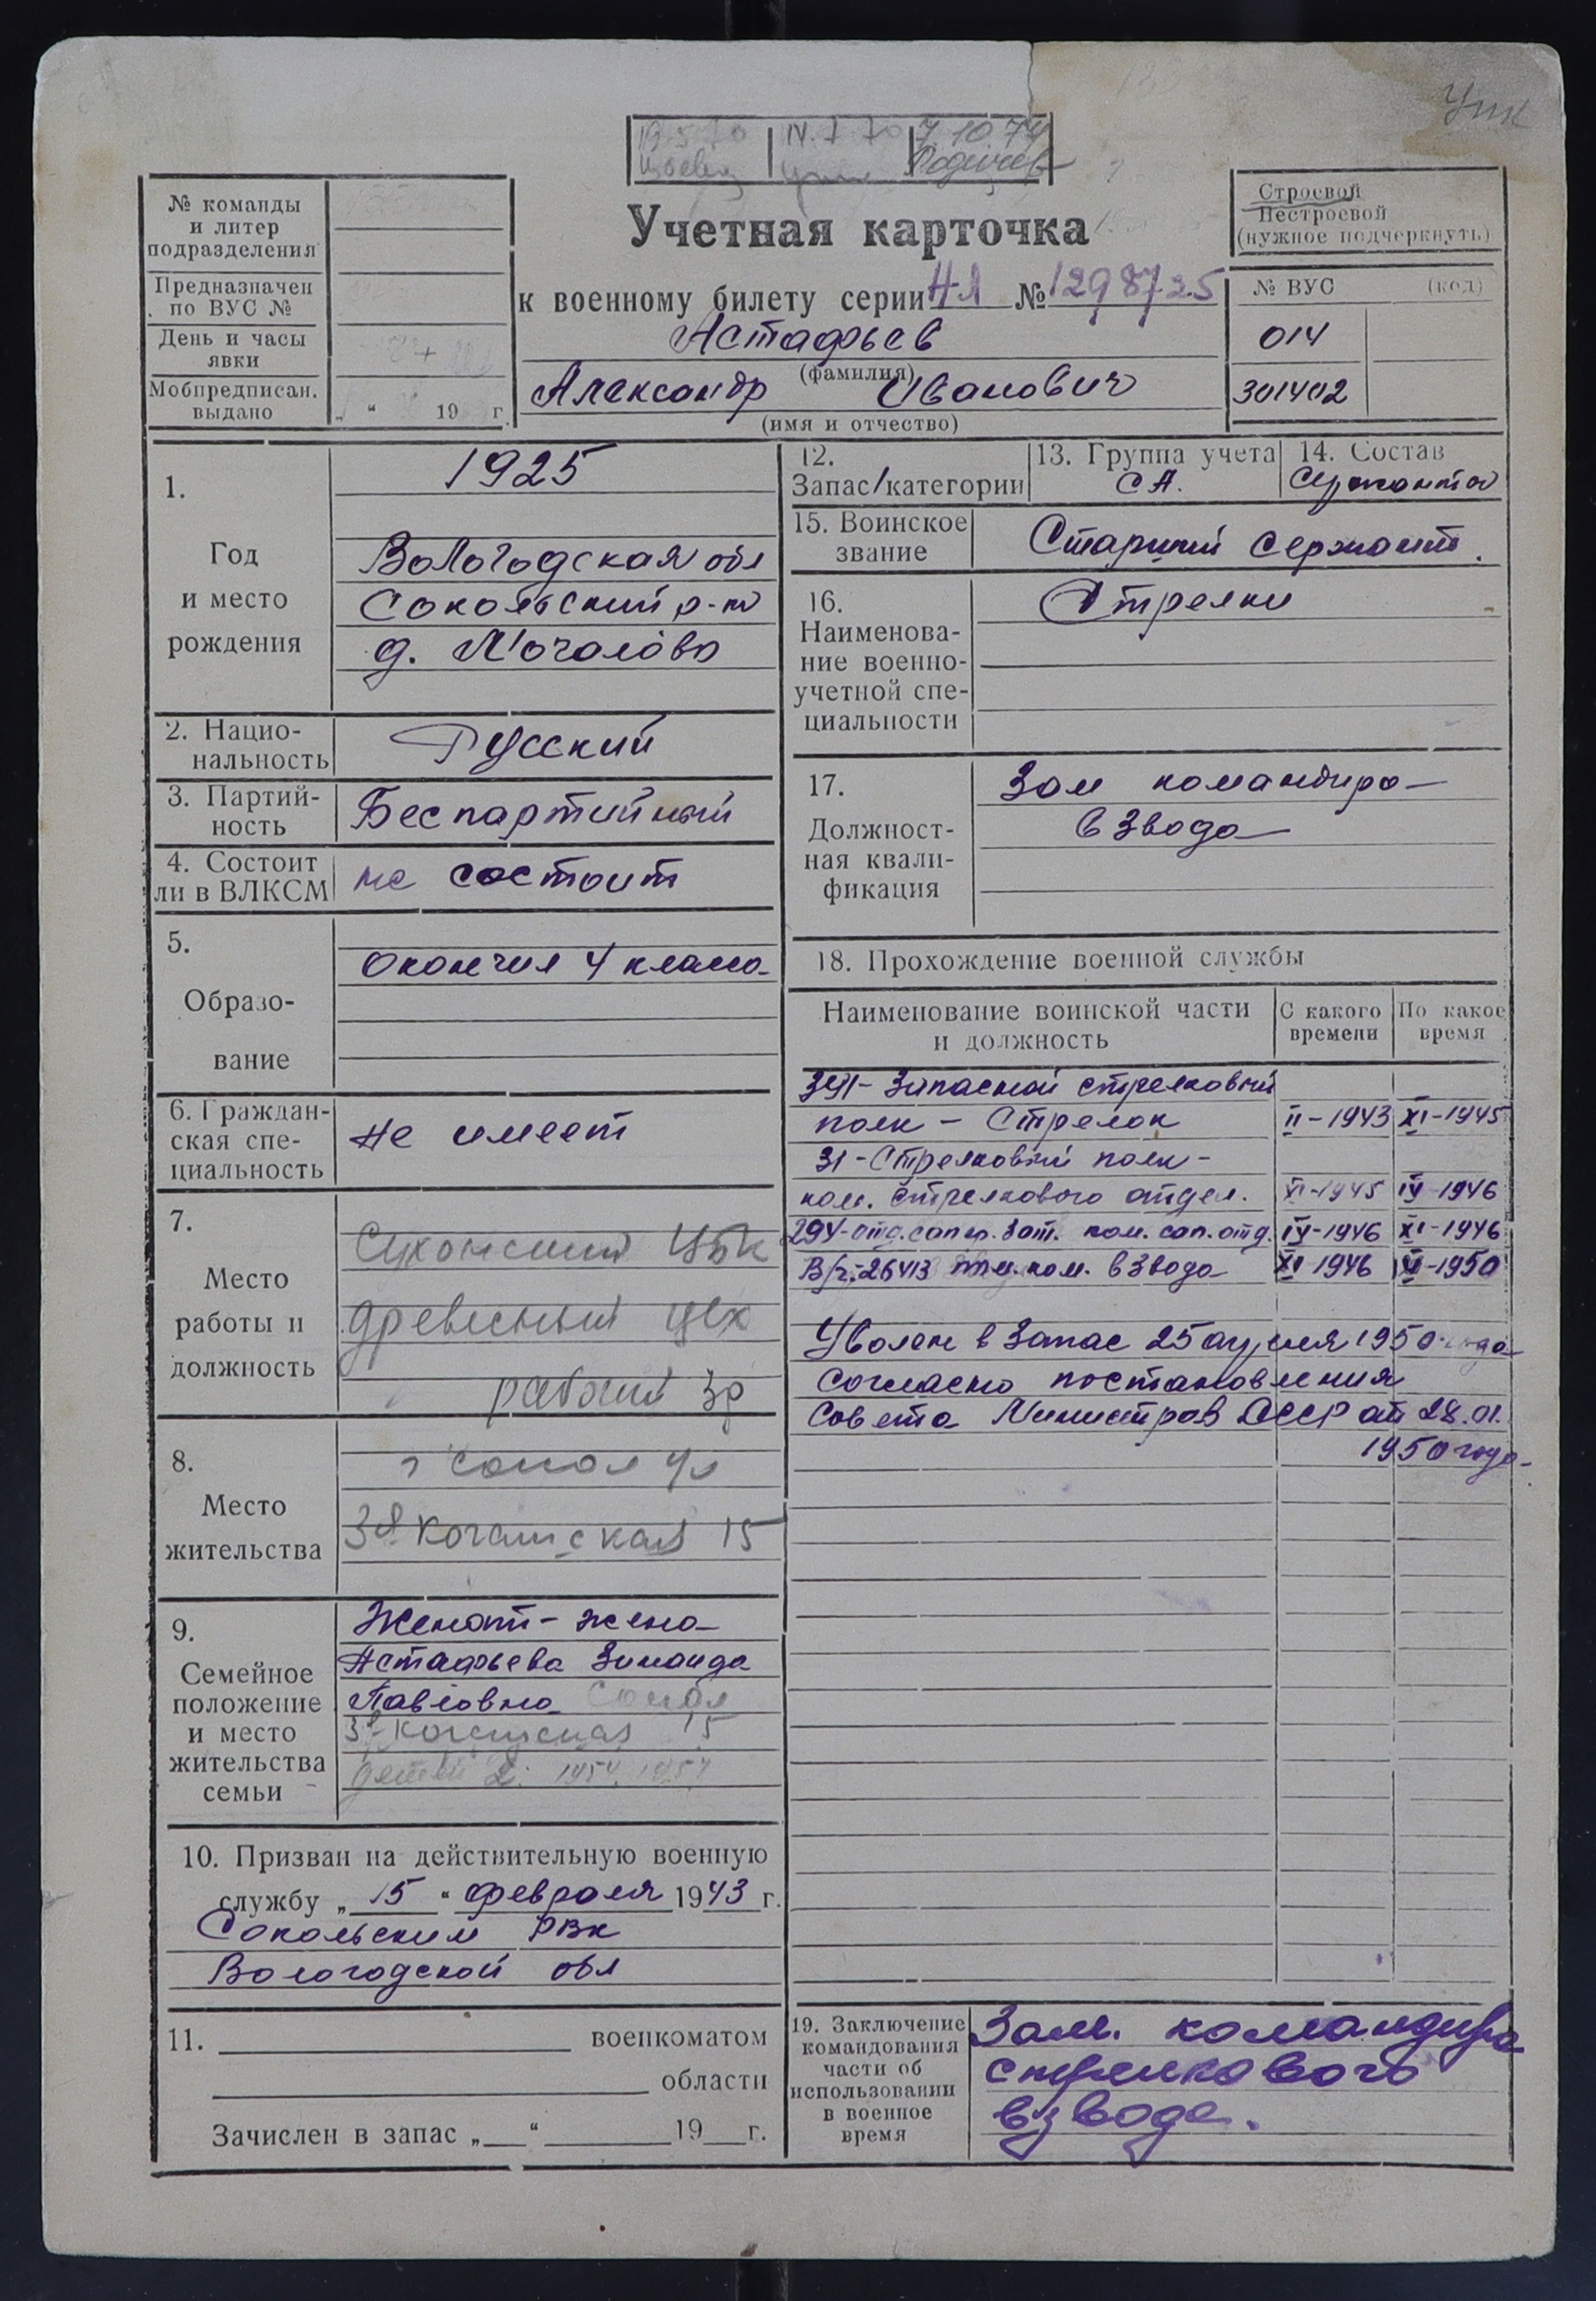 Упк
19.5.70
IV.7.70
7 10 74
№ команды
и литер
подразделения
Предназначен
по ВУС №
День и часы
явки
Мобпредписан.
выдано
„ “ 19 г.
Учетная карточка
к военному билету серии НЛ № 1298725
Астафьев
(фамилия)
Александр Иванович
(имя и отчество)
Строевой
Нестроевой
(нужное подчеркнуть)
№ ВУС (код)
014
301402
1.
Год
и место
рождения
1925
Вологодская обл
Сокольский р-н
д. Мочалово
2. Нацио-
нальность
Русский
3. Партий-
ность
Беспартийный
4. Состоит
ли в ВЛКСМ
не состоит
5.
Образо-
вание
Окончил 4 класса
6. Граждан-
ская спе-
циальность
Не имеет
7.
Место
работы и
должность
Сухонский ЦБК
древесный цех
рабочий 3р
8.
Место
жительства
г Сокол ул
3я
15
9.
Семейное
положение
и место
жительства
семьи
Женат - жена
Астафьева Зинаида
Павловна Сокол
15
детей 2: 1954, 1957
10. Призван на действительную военную
службу „ 15 “ февраля 1943 г.
Сокольским РВК
Вологодской обл
11. военкоматом
области
Зачислен в запас „ “ 19 г.
12.
Запас/категории
13. Группа учета
СА.
14. Состав
Сержантов
15. Воинское
звание
Старший сержант.
16.
Наименова-
ние военно-
учетной спе-
циальности
Стрелки
17.
Должност-
ная квали-
фикация
Зам командира
взвода
18. Прохождение военной службы
Наименование воинской части
и должность
С какого
времени
По какое
время
Запасной стрелковый
полк - Стрелок II-1943 XI-1945
31-Стрелковый полк -
ком. стрелкового отдел. XI-1945 IV-1946
294-отд.сапер.бат. ком. сап.отд. IV-1946 XI-1946
В/ч-26413 пом.ком. взвода XI 1946 V-1950
Уволен в запас 25 апреля 1950 года
согласно постановления
Совета Министров СССР от 28.01.
1950 года
19. Заключение
командования
части об
использовании
в военное
время
Зам. командира
стрелкового
взвода.